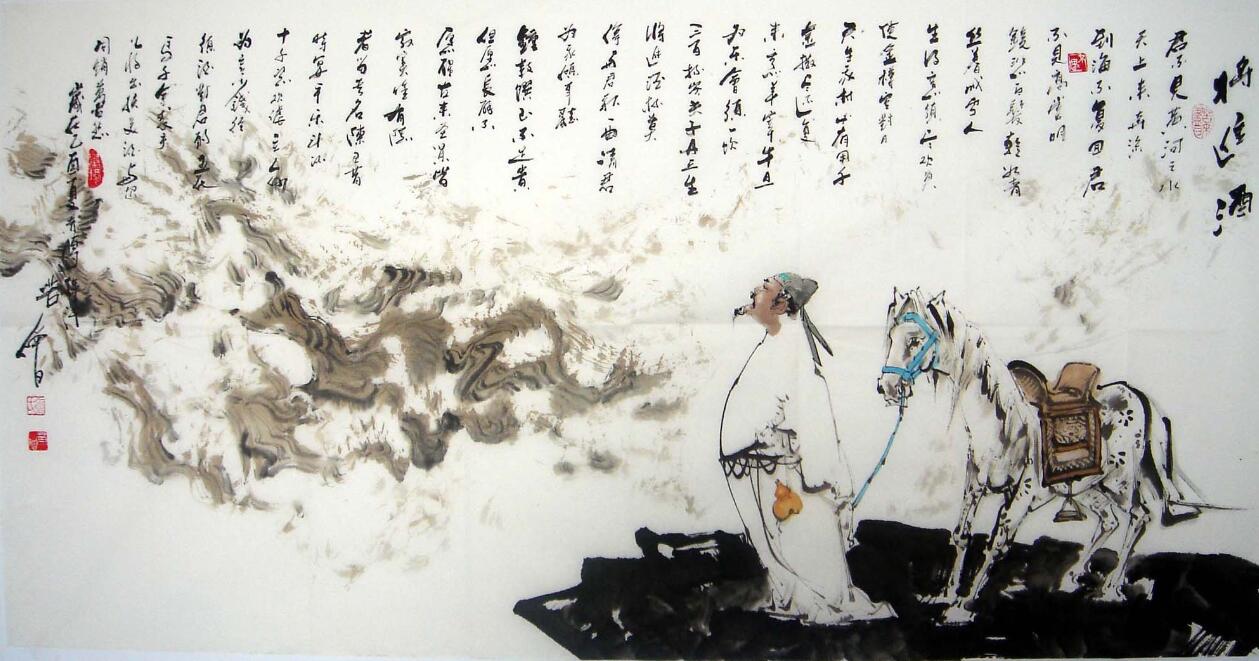 將進酒
君不見黃河之水
天上來奔流
到海不復回君
不見高堂明
鏡悲白髮朝如青
絲暮成雪人
生得意須盡歡莫
使金樽空對月
天生我材必有用千
金散盡還復
來烹羊宰牛且
為樂會須一飲
三百杯岑夫子丹丘生
將進酒杯莫
停與君歌一曲請君
為我傾耳聽
鐘鼓饌玉不足貴
但願長醉不
願醒古來聖賢皆
寂寞惟有飲
者留其名陳王昔
時宴平樂斗酒
十千恣歡謔主人何
為言少錢徑
須沽對君酌五花
馬千金裘呼
兒將出換美酒與爾
同銷萬古愁
歲在乙酉夏